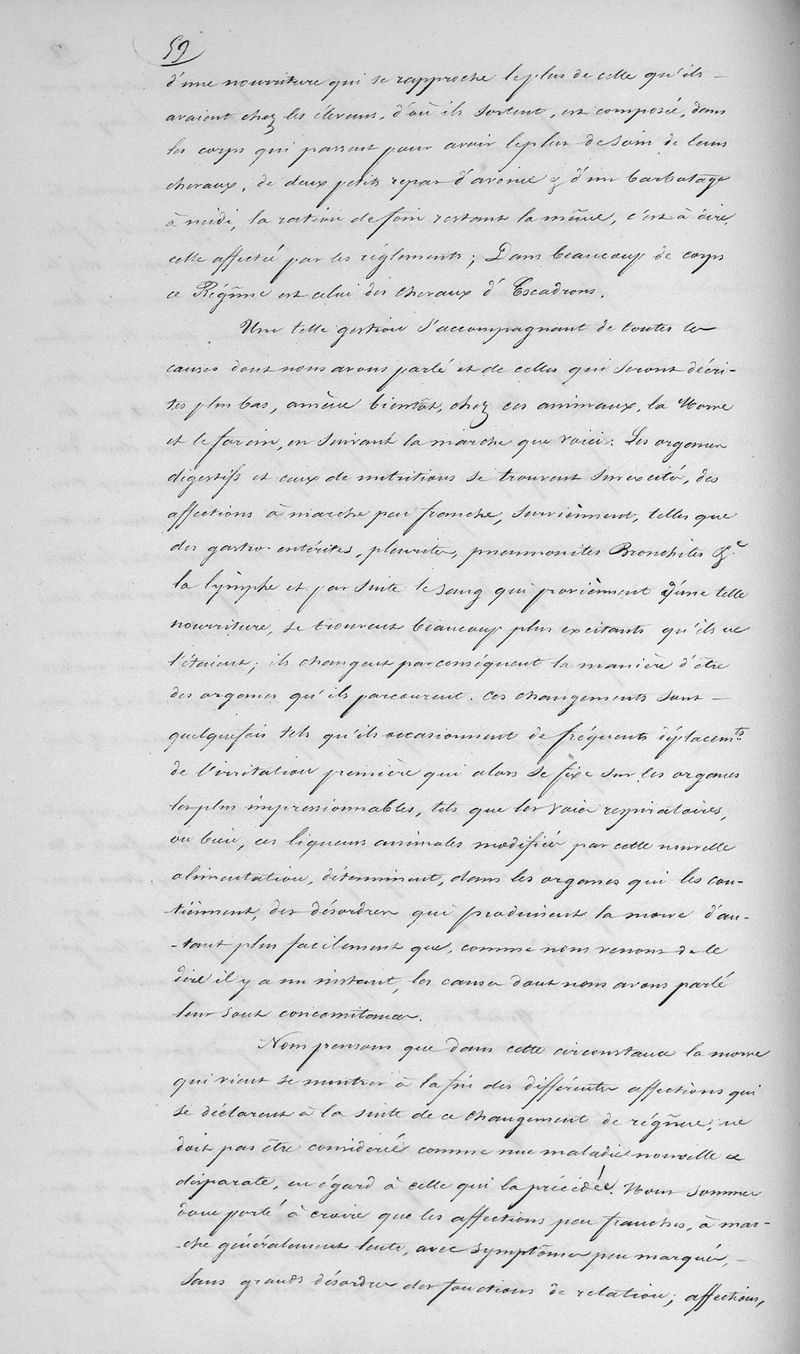 59
d'une nourriture qui se rapproche le plus de celle qu'ils –
avaient chez les éleveurs, d'où ils sortent, est composée, dans
les corps qui passent pour avoir le plus de soin de leurs
chevaux, de deux petits repas d'avoine & d'un barbotage
à midi, la ration de foin restant la même, c'est à dire,
celle affectée par les réglements; Dans beaucoup de corps
ce Régime est celui des chevaux d'Escadrons.
Une telle gestion s'accompagnant de toutes les
causes dont nous avons parlé et de celles qui seront décri-
tes plus bas, amène bientôt, chez ces animaux, la Morve
et le farcin, en suivant la marche que voici: Les organes
digestifs et ceux de nutritions se trouvent surexcités, des
affections à marche peu franche, surviènnent, telles que
des gastro-entérites, pleurites, pneumonites Bronchites &c
la lymphe et par suite le sang qui proviènnent d'une telle
nourriture, se trouvent beaucoup plus excitants qu'ils ne
l'étaient; ils changent par conséquent la manière d'être
des organes qu'ils parcourent. Ces changements sont –
quelquefois tels qu'ils occasionnent de fréquents déplacemts
de l'irritation première qui alors se fixe sur les organes
les plus impressionnables, tels que les voies respiratoires,
ou bien, ces liqueurs animales modifiées par cette nouvelle
alimentation, déterminent, dans les organes qui les con-
tiènnent, des désordres qui produisent la morve d'au-
-tant plus facilement que, comme nous venons de le
dire il y a un instant, les causes dont nous avons parlé
leur sont concomitances.
Nous pensons que dans cette circonstance la morve
qui vient se montrer à la fin des différentes affections qui
se déclarent à la suite de ce changement de régime, ne
doit pas être considérée comme une maladie nouvelle &
disparate, eu égard à celle qui la précédé. Nous sommes
donc porté à croire que les affections peu franches, à mar-
-che généralement lente, avec symptômes peu marqués, –
sans grands désordres des fonctions de relation; affections,